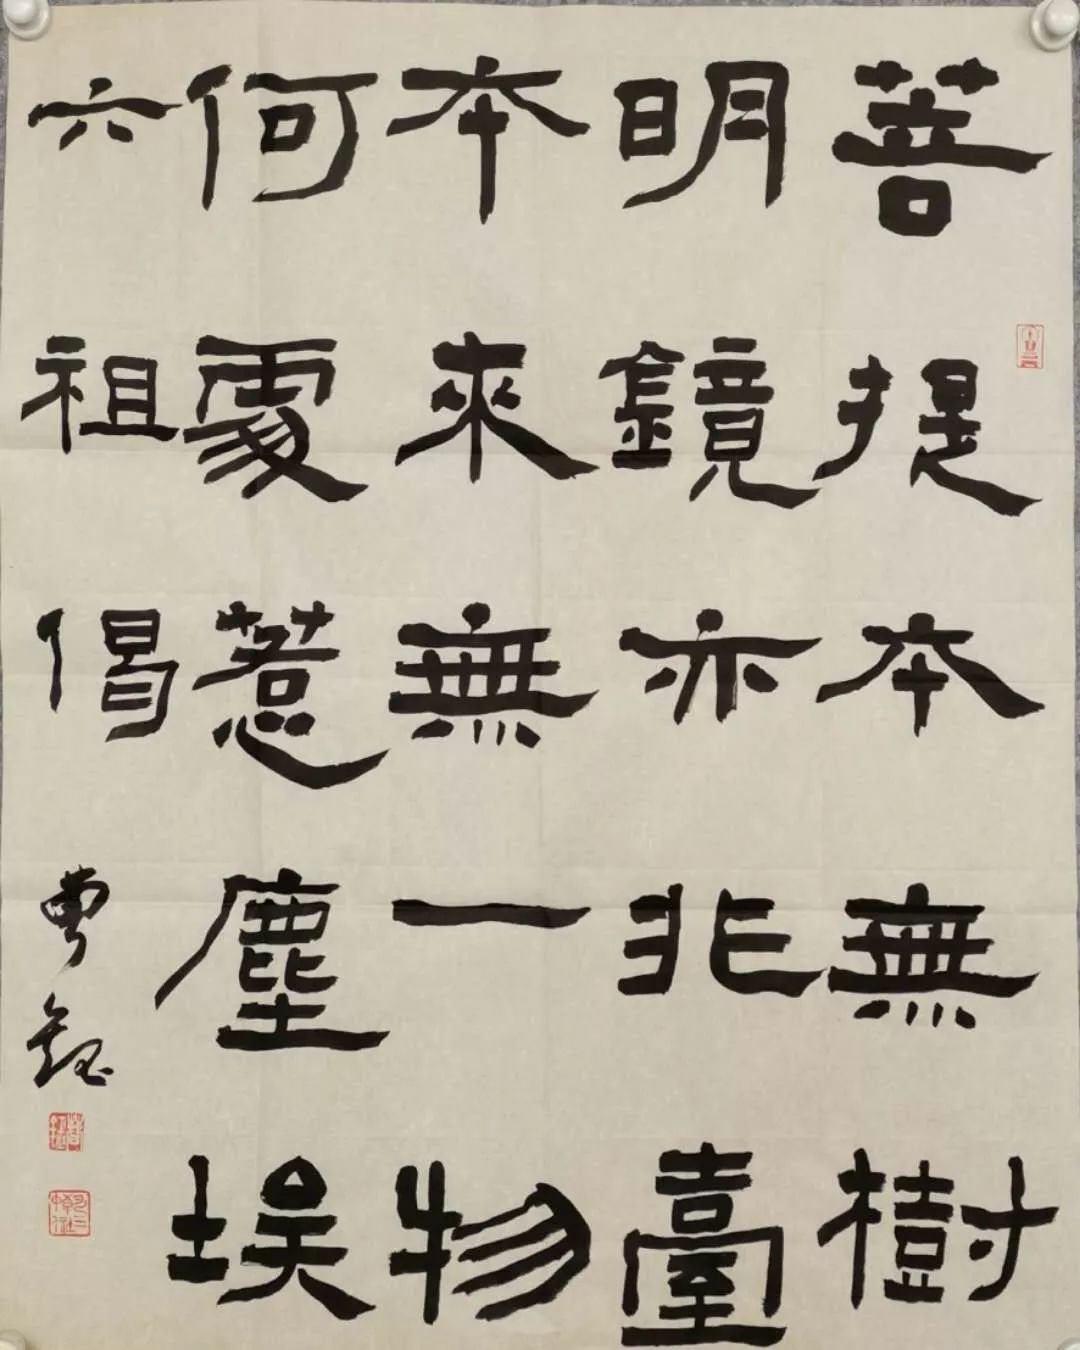 菩提本無樹
明鏡亦非臺
本來無一物
何處惹塵埃
六祖偈
曹鈺